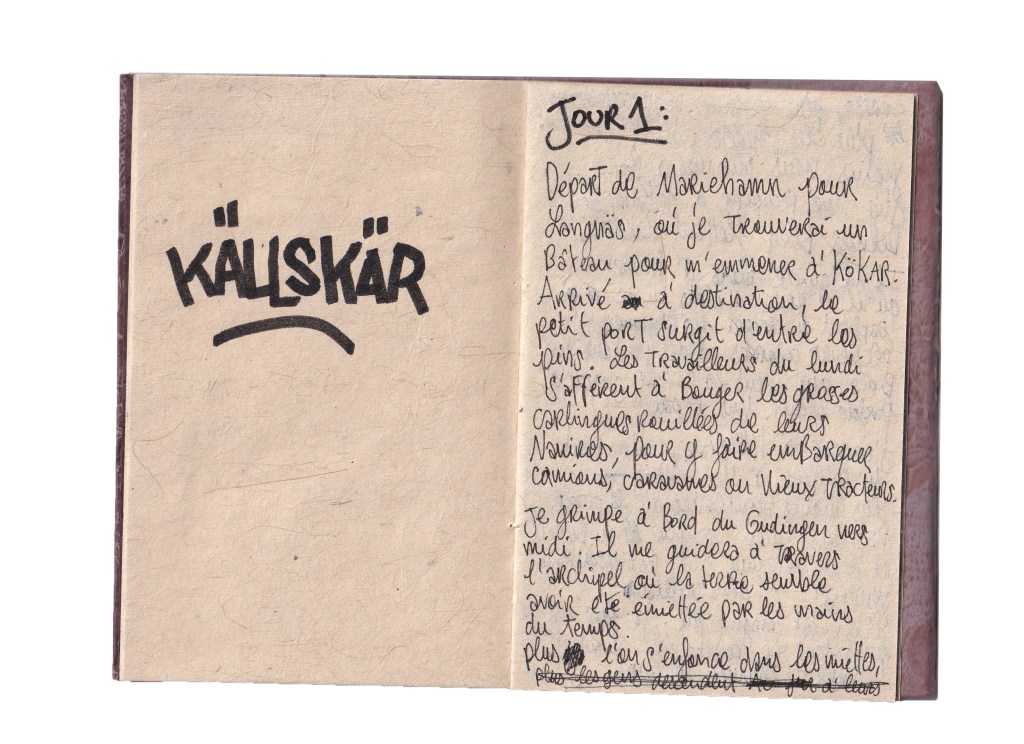 KÄLLSKÄR
JOUR 1:
Départ de Mariehamn pour
Langnäs, où je trouverai un
Bâteau pour m'emmener à KöKAR.
Arrivé à destination, le
petit port surgit d'entre les
pins. Les travailleurs du lundi
s'affèrent à Bouger les grosses
carlingues rouillées de leurs
Navires, pour y faire emBarquer
camions, caravanes ou Vieux Tracteurs.
je grimpe à Bord du Gudingen vers
midi. Il me guidera à travers
l'archipel où la terre semble
avoir été émiettée par les mains
du temps.
plus l'on s'enfonce dans les miettes,
plus les gens descendent au fur à leurs